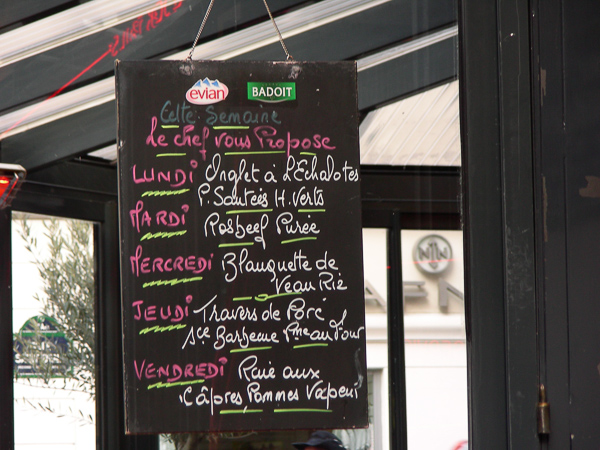 evian BADOIT
Cette Semaine
Le chef vous Propose
LUNDI Onglet à L'Echalotes
P. Sautées H. Verts
MARDI Rosbeef Purée
MERCREDI Blanquette de
Veau Riz
JEUDI Travers de Porc
Sce Barbecue Pme au Four
VENDREDI Raie aux
Câpres Pommes Vapeur